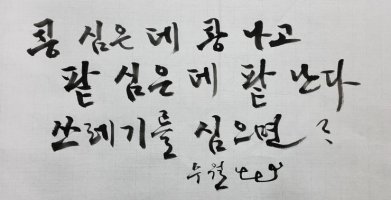 콩 심은 데 콩 나고
팥 심은 데 팥 난다
쓰레기를 심으면 ?
누월